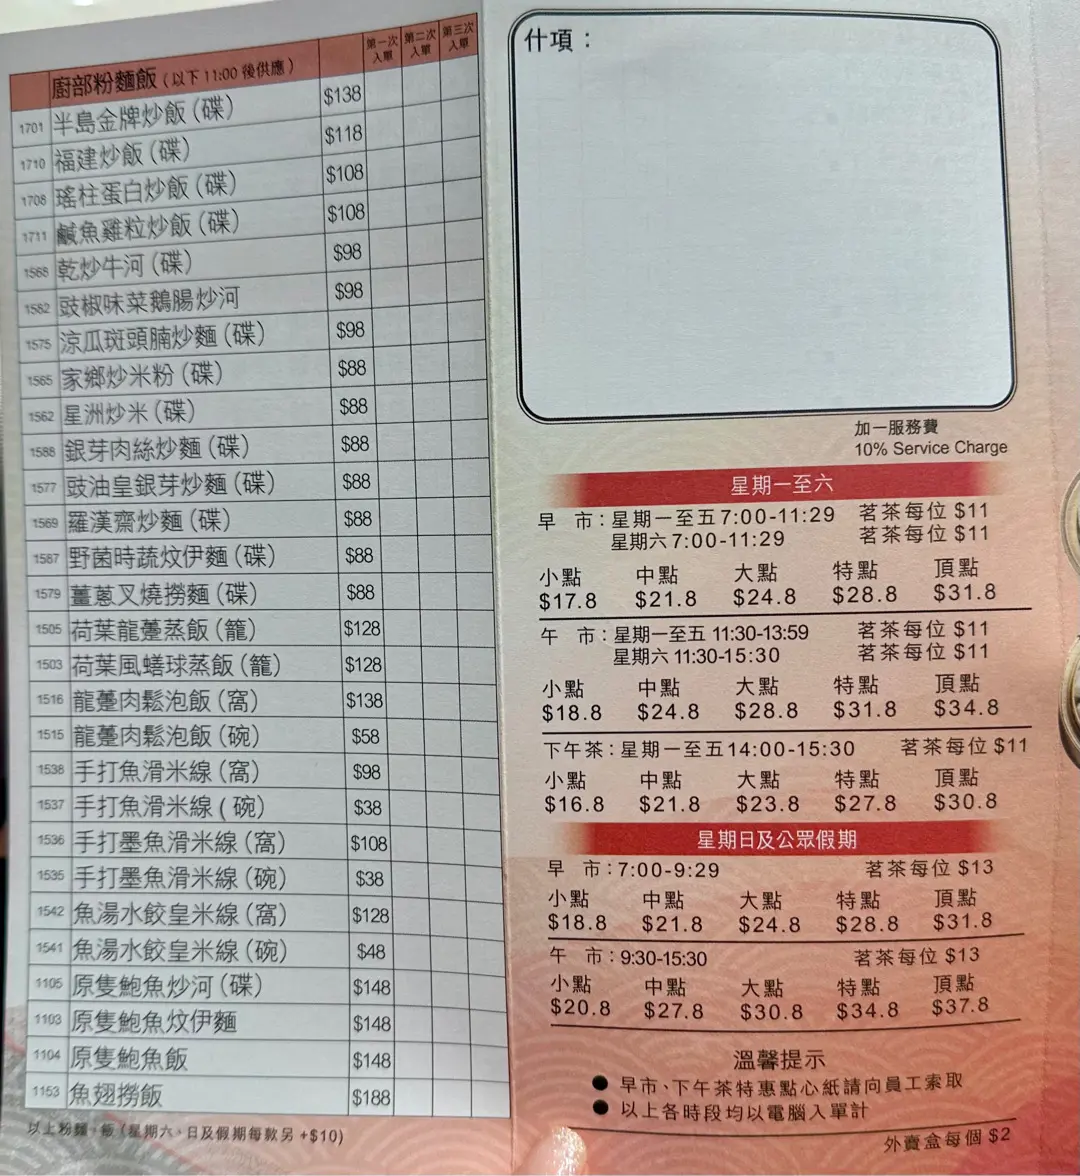 廚部粉麵飯(以下11:00後供應) 第一次入單 第二次入單 第三次入單
1701 半島金牌炒飯(碟) $138
1710 福建炒飯(碟) $118
1708 瑤柱蛋白炒飯(碟) $108
1711 鹹魚雞粒炒飯(碟) $108
1568 乾炒牛河(碟) $98
1582 豉椒味菜鵝腸炒河 $98
1575 涼瓜斑頭腩炒麵(碟) $98
1565 家鄉炒米粉(碟) $88
1562 星洲炒米(碟) $88
1588 銀芽肉絲炒麵(碟) $88
1577 豉油皇銀芽炒麵(碟) $88
1569 羅漢齋炒麵(碟) $88
1587 野菌時蔬炆伊麵(碟) $88
1579 薑蔥叉燒撈麵(碟) $88
1505 荷葉龍躉蒸飯(籠) $128
1503 荷葉風鱔球蒸飯(籠) $128
1516 龍躉肉鬆泡飯(窩) $138
1515 龍躉肉鬆泡飯(碗) $58
1538 手打魚滑米線(窩) $98
1537 手打魚滑米線(碗) $38
1536 手打墨魚滑米線(窩) $108
1535 手打墨魚滑米線(碗) $38
1542 魚湯水餃皇米線(窩) $128
1541 魚湯水餃皇米線(碗) $48
1105 原隻鮑魚炒河(碟) $148
1103 原隻鮑魚炆伊麵 $148
1104 原隻鮑魚飯 $148
1153 魚翅撈飯 $188
以上粉麵、飯(星期六、日及假期每款另+$10)
什項：
加一服務費
10% Service Charge
星期一至六
早 市：星期一至五7:00-11:29 茗茶每位 $11
星期六7:00-11:29 茗茶每位 $11
小點 中點 大點 特點 頂點
$17.8 $21.8 $24.8 $28.8 $31.8
午 市：星期一至五 11:30-13:59 茗茶每位 $11
星期六 11:30-15:30 茗茶每位 $11
小點 中點 大點 特點 頂點
$18.8 $24.8 $28.8 $31.8 $34.8
下午茶：星期一至五14:00-15:30 茗茶每位 $11
小點 中點 大點 特點 頂點
$16.8 $21.8 $23.8 $27.8 $30.8
星期日及公眾假期
早 市：7:00-9:29 茗茶每位 $13
小點 中點 大點 特點 頂點
$18.8 $21.8 $24.8 $28.8 $31.8
午 市：9:30-15:30 茗茶每位 $13
小點 中點 大點 特點 頂點
$20.8 $27.8 $30.8 $34.8 $37.8
溫馨提示
● 早市、下午茶特惠點心紙請向員工索取
● 以上各時段均以電腦入單計
外賣盒每個 $2